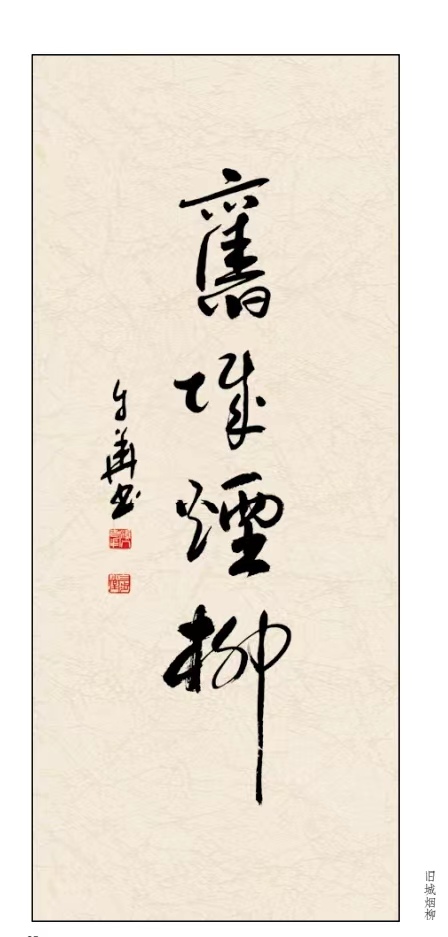 舊城煙柳
華书
旧城烟柳